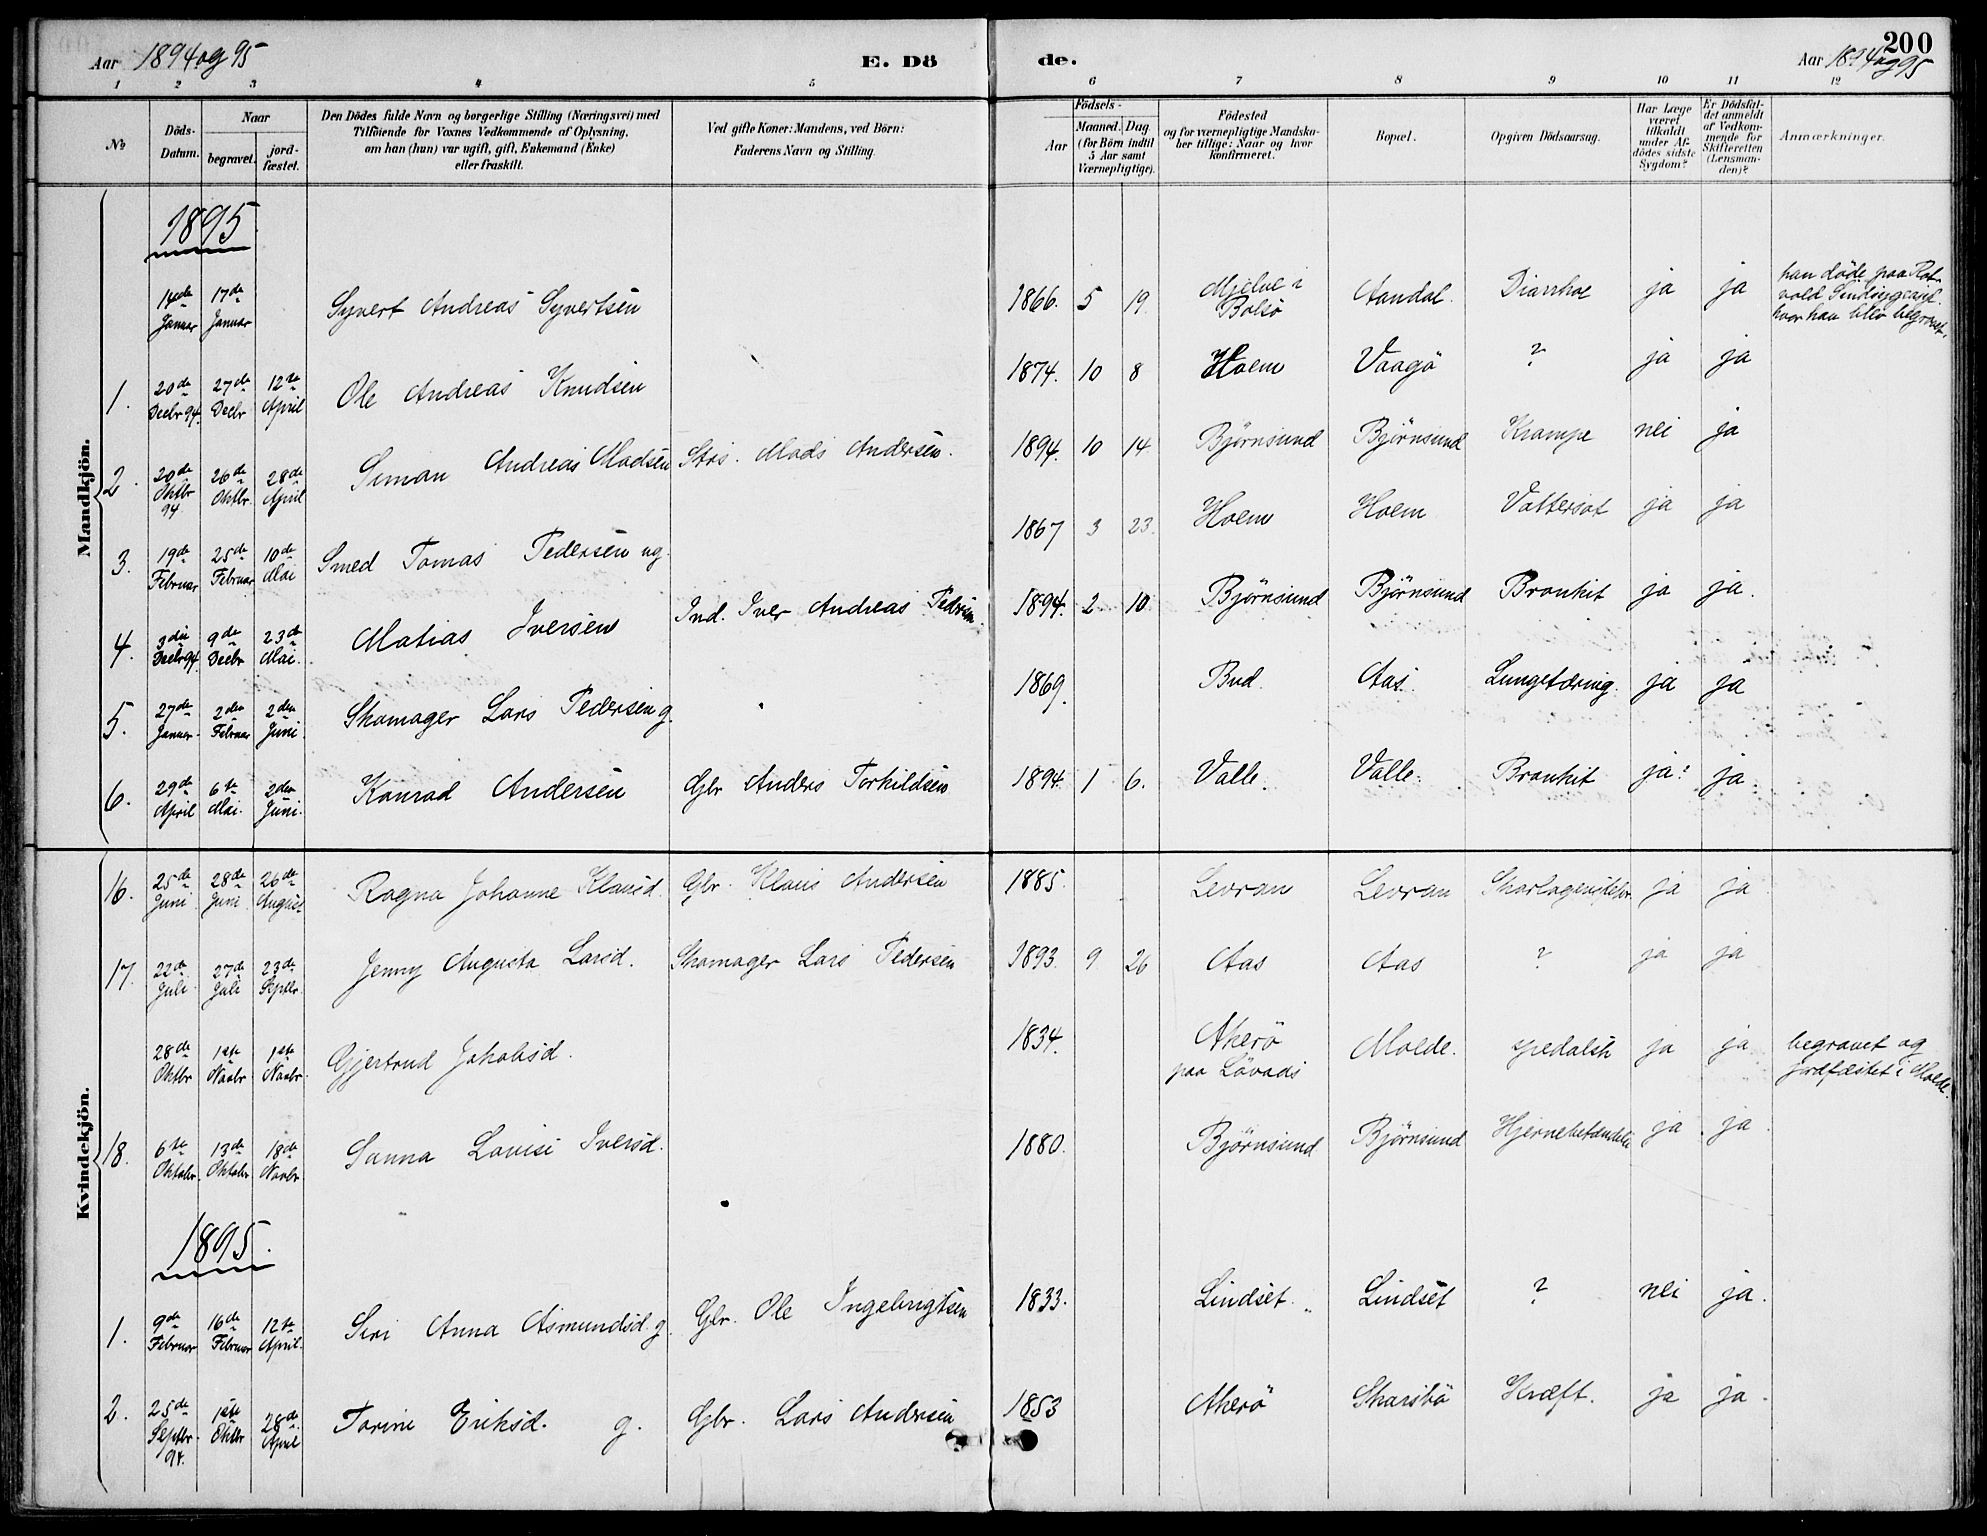 Aar 1894 og 95
E. Dö
de.
Aar 1894 og 95
200
1 2 3 4 5 6 7 8 9 10 11 12
No
Döds-Datum.
Naar
begravet.
jord-fæstet.
Den Dödes fulde Navn og borgerlige Stilling (Næringsvei) med
Tilföiende for Voxnes Vedkommende af Oplysning,
om han (hun) var ugift, gift, Enkemand (Enke)
eller fraskilt.
Ved gifte Koner: Mandens, ved Börn:
Faderens Navn og Stilling.
Födsels-
Aar
Maaned. Dag
(for Börn indtil
5 Aar samt
Værnepligtige).
Födested
og for værnepligtige Mandska-
ber tillige: Naar og hvor
konfirmeret.
Bopæl.
Opgiven Dödsaarsag.
Har Læge
været
tilkaldt
under Af-
dödes sidste
Sygdom?
Er Dödsfal-
det anmeldt
af Vedkom-
mende for
Skifteretten
(Lensman-
den)?
Anmærkninger.
Mandkjön.
1895
14de Januar 17de Januar Syvert Andreas Syvertsen 1866. 5 19. Mjelve i Bolsö Aandal. Diarrhoe ja ja han døde paa Rot-
vold Sindsygeasyl.
hvor han blev begravet.
1. 20de Decbr 94. 27de Decbr 12te April Ole Andreas Knudsen 1874. 10 8 Hoem Vaagö ? ja ja
2. 20de Oktbr 94 26de Oktbr. 28de April Simon Andreas Madsen Strs. Mads Andersen. 1894. 10 14 Björnsund Björnsund Krampe nei ja
3. 19de Februar 25de Februar 10de Mai Smed Tomas Pedersen ug. 1867 3 23. Hoem Hoem Vattersot ja ja
4. 3die Decbr 94. 9de Decbr 23de Mai. Matias Iversen Ind. Iver Andreas Pedersen. 1894. 2 10. Björnsund Björnsund Bronkit ja ja.
5. 27de Januar 2den Februar 2den Juni Skomager Lars Pedersen g. 1869. Bud. Aas. Lungetæring. ja ja
6. 29de April 6te Mai. 2den Juni. Konrad Andersen Gbr Anders Torkildsen 1894. 1 6. Valle. Valle. Bronkit ja. ja.
Kvindekjön.
16. 25de Juni 28de Juni 26de August Ragna Johanne Klausd. Gbr. Klaus Andersen 1885. Levran Levran Skarlagensfeber. ja ja
17. 22de Juli 27de Juli 23de Septbr. Jenny Augusta Larsd. Skomager Lars Pedersen 1893. 9 26 Aas Aas ? ja ja
28de Oktbr 1ste Novbr 1ste Novbr. Gjertrud Jakobsd. 1834. Akerö paa Lövaas Molde. spedalsk ja ja begravet og
jordfæstet i Molde.
18. 6te Oktober 13de Oktober 18de Novbr. Sanna Lovise Iversd. 1880. Björnsund Björnsund Hjernebetændelse ja. ja
1895.
1. 9de Februar 16de Februar 12te April. Siri Anna Asmundsd. g. Gbr. Ole Ingebrigtsen 1833. Lindset. Lindset ? nei ja.
2. 25de Septbr. 94. 1ste Oktbr 28de April Torine Eriksd. g. Gbr. Lars Andersen 1853 Akerö Skarsbö Kræft. ja ja.